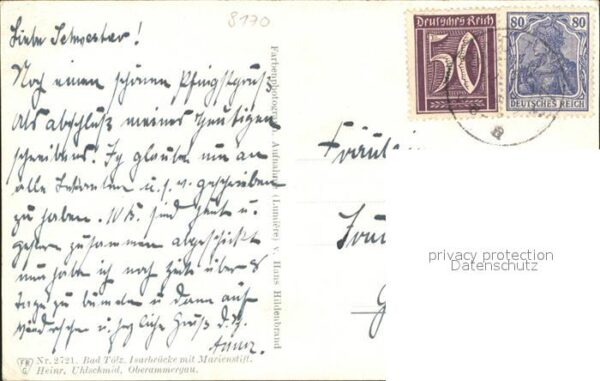 8170
Liebe Schwester!
Noch einen schönen Pfingstgruß
Als abschluß meines heutigen
schreibens. Ich glaube nun an
alle u.s.w. geschrieben
zu haben. sind heut u.
gestern zusammen abgeschickt
nun habe ich noch Zeit über 8
tage zu u dann auf
wiedersehen u. herzliche Grüß d.
Farbenphotogr. Aufnahme (Lumière) v. Hans Hildenbrand
Nr. 2721. Bad Tölz. Isarbrücke mit Marienstift.
Heinr. Uhlschmid, Oberammergau.
Deutsches Reich
50
80 80
DEUTSCHES REICH
Fräul
privacy protection
Datenschutz